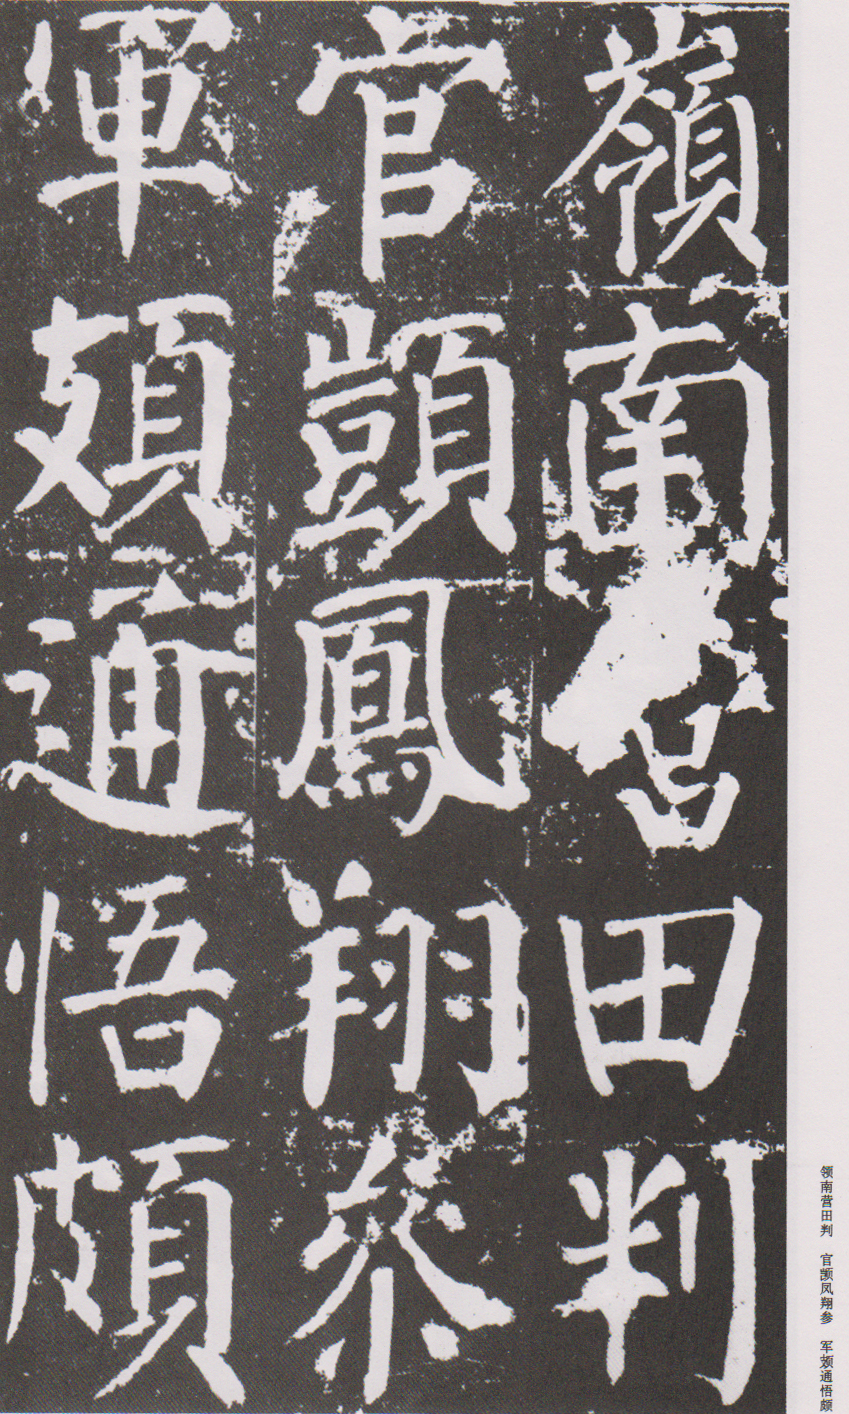 嶺南營田判
官顗鳳翔參
軍頍通悟頗
领南营田判 官顗凤翔参 军頍通悟颇